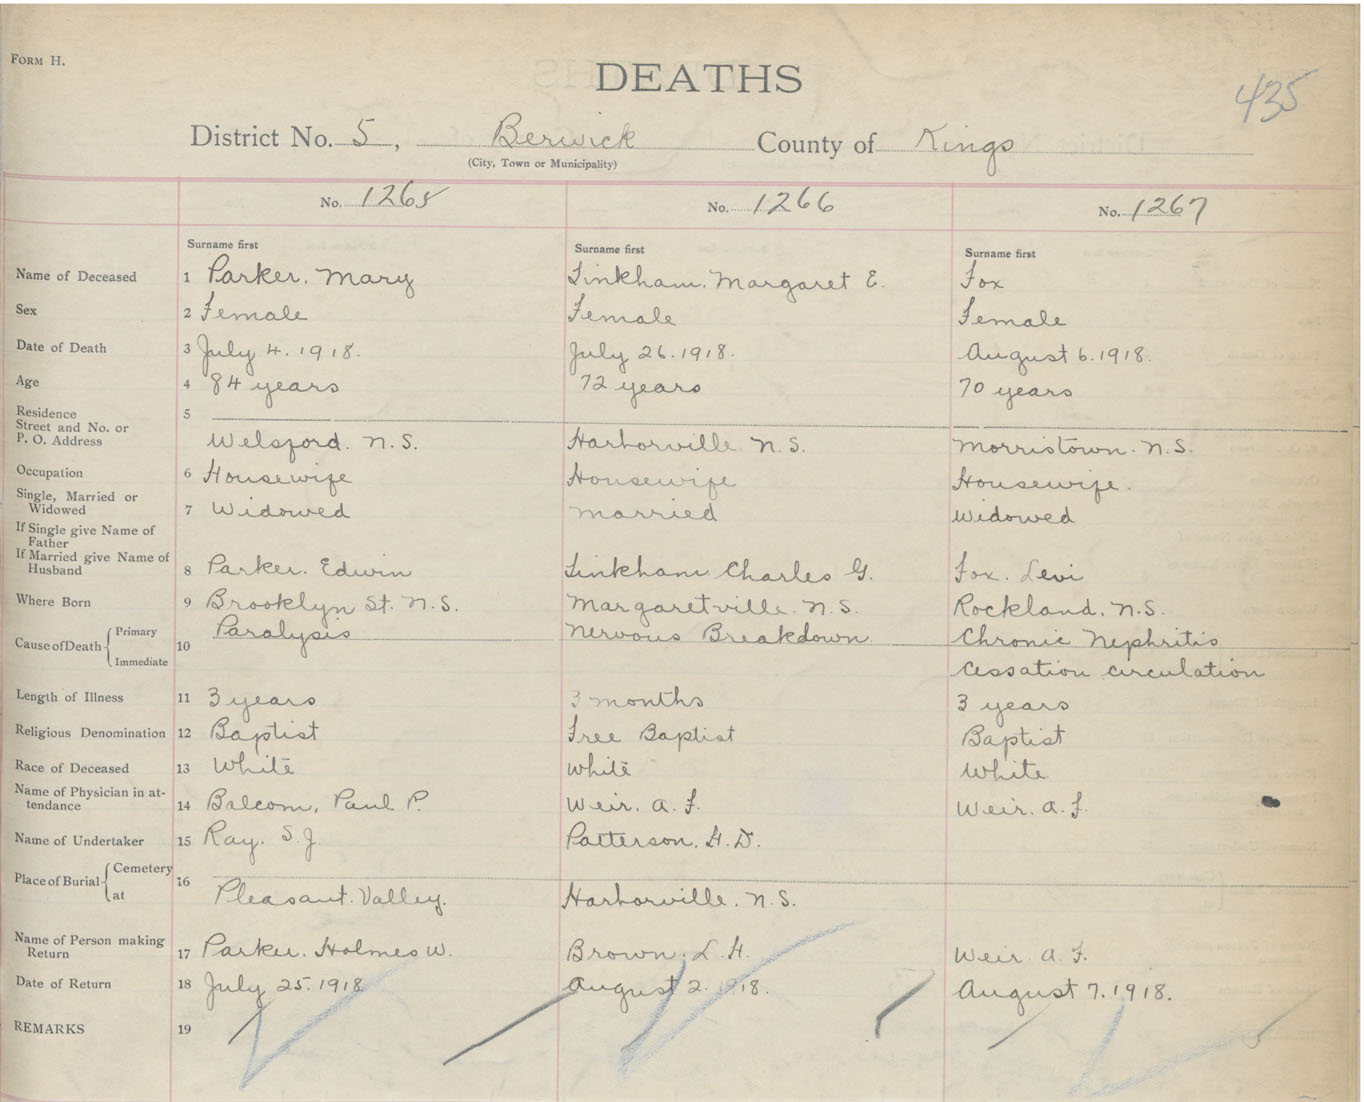 FORM H.
DEATHS
435
District No. 5, Berwick County of Kings
(City, Town or Municipality)
No. 1265 No. 1266 No. 1267
Surname first Surname first Surname first
Name of Deceased 1 Parker. Mary Linkham. Margaret E. Fox
Sex 2 Female Female Female
Date of Death 3 July 4. 1918. July 26. 1918. August 6. 1918.
Age 4 84 years 72 years 70 years
Residence 5
Street and No. or
P. O. Address Welsford. N.S. Harborville N.S. Morristown. N.S.
Occupation 6 Housewife Housewife Housewife.
Single, Married or
Widowed 7 Widowed Married Widowed
If Single give Name of
Father
If Married give Name of
Husband 8 Parker. Edwin Linkham Charles G. Fox. Levi
Where Born 9 Brooklyn St. N.S. Margaretville. N.S. Rockland. N.S.
Cause of Death Primary 10 Paralysis Nervous Breakdown Chronic Nephritis
Immediate Cessation circulation
Length of Illness 11 3 years 3 months 3 years
Religious Denomination 12 Baptist Free Baptist Baptist
Race of Deceased 13 White White White
Name of Physician in at-
tendance 14 Balcom, Paul P. Weir. A. F. Weir. A. F.
Name of Undertaker 15 Ray. S. J. Patterson. H. D.
Place of Burial Cemetery 16
at Pleasant Valley. Harborville. N.S.
Name of Person making
Return 17 Parker. Holmes W. Brown. L. H. Weir A. F.
Date of Return 18 July 25. 1918 August 2. 1918. August 7. 1918.
REMARKS 19